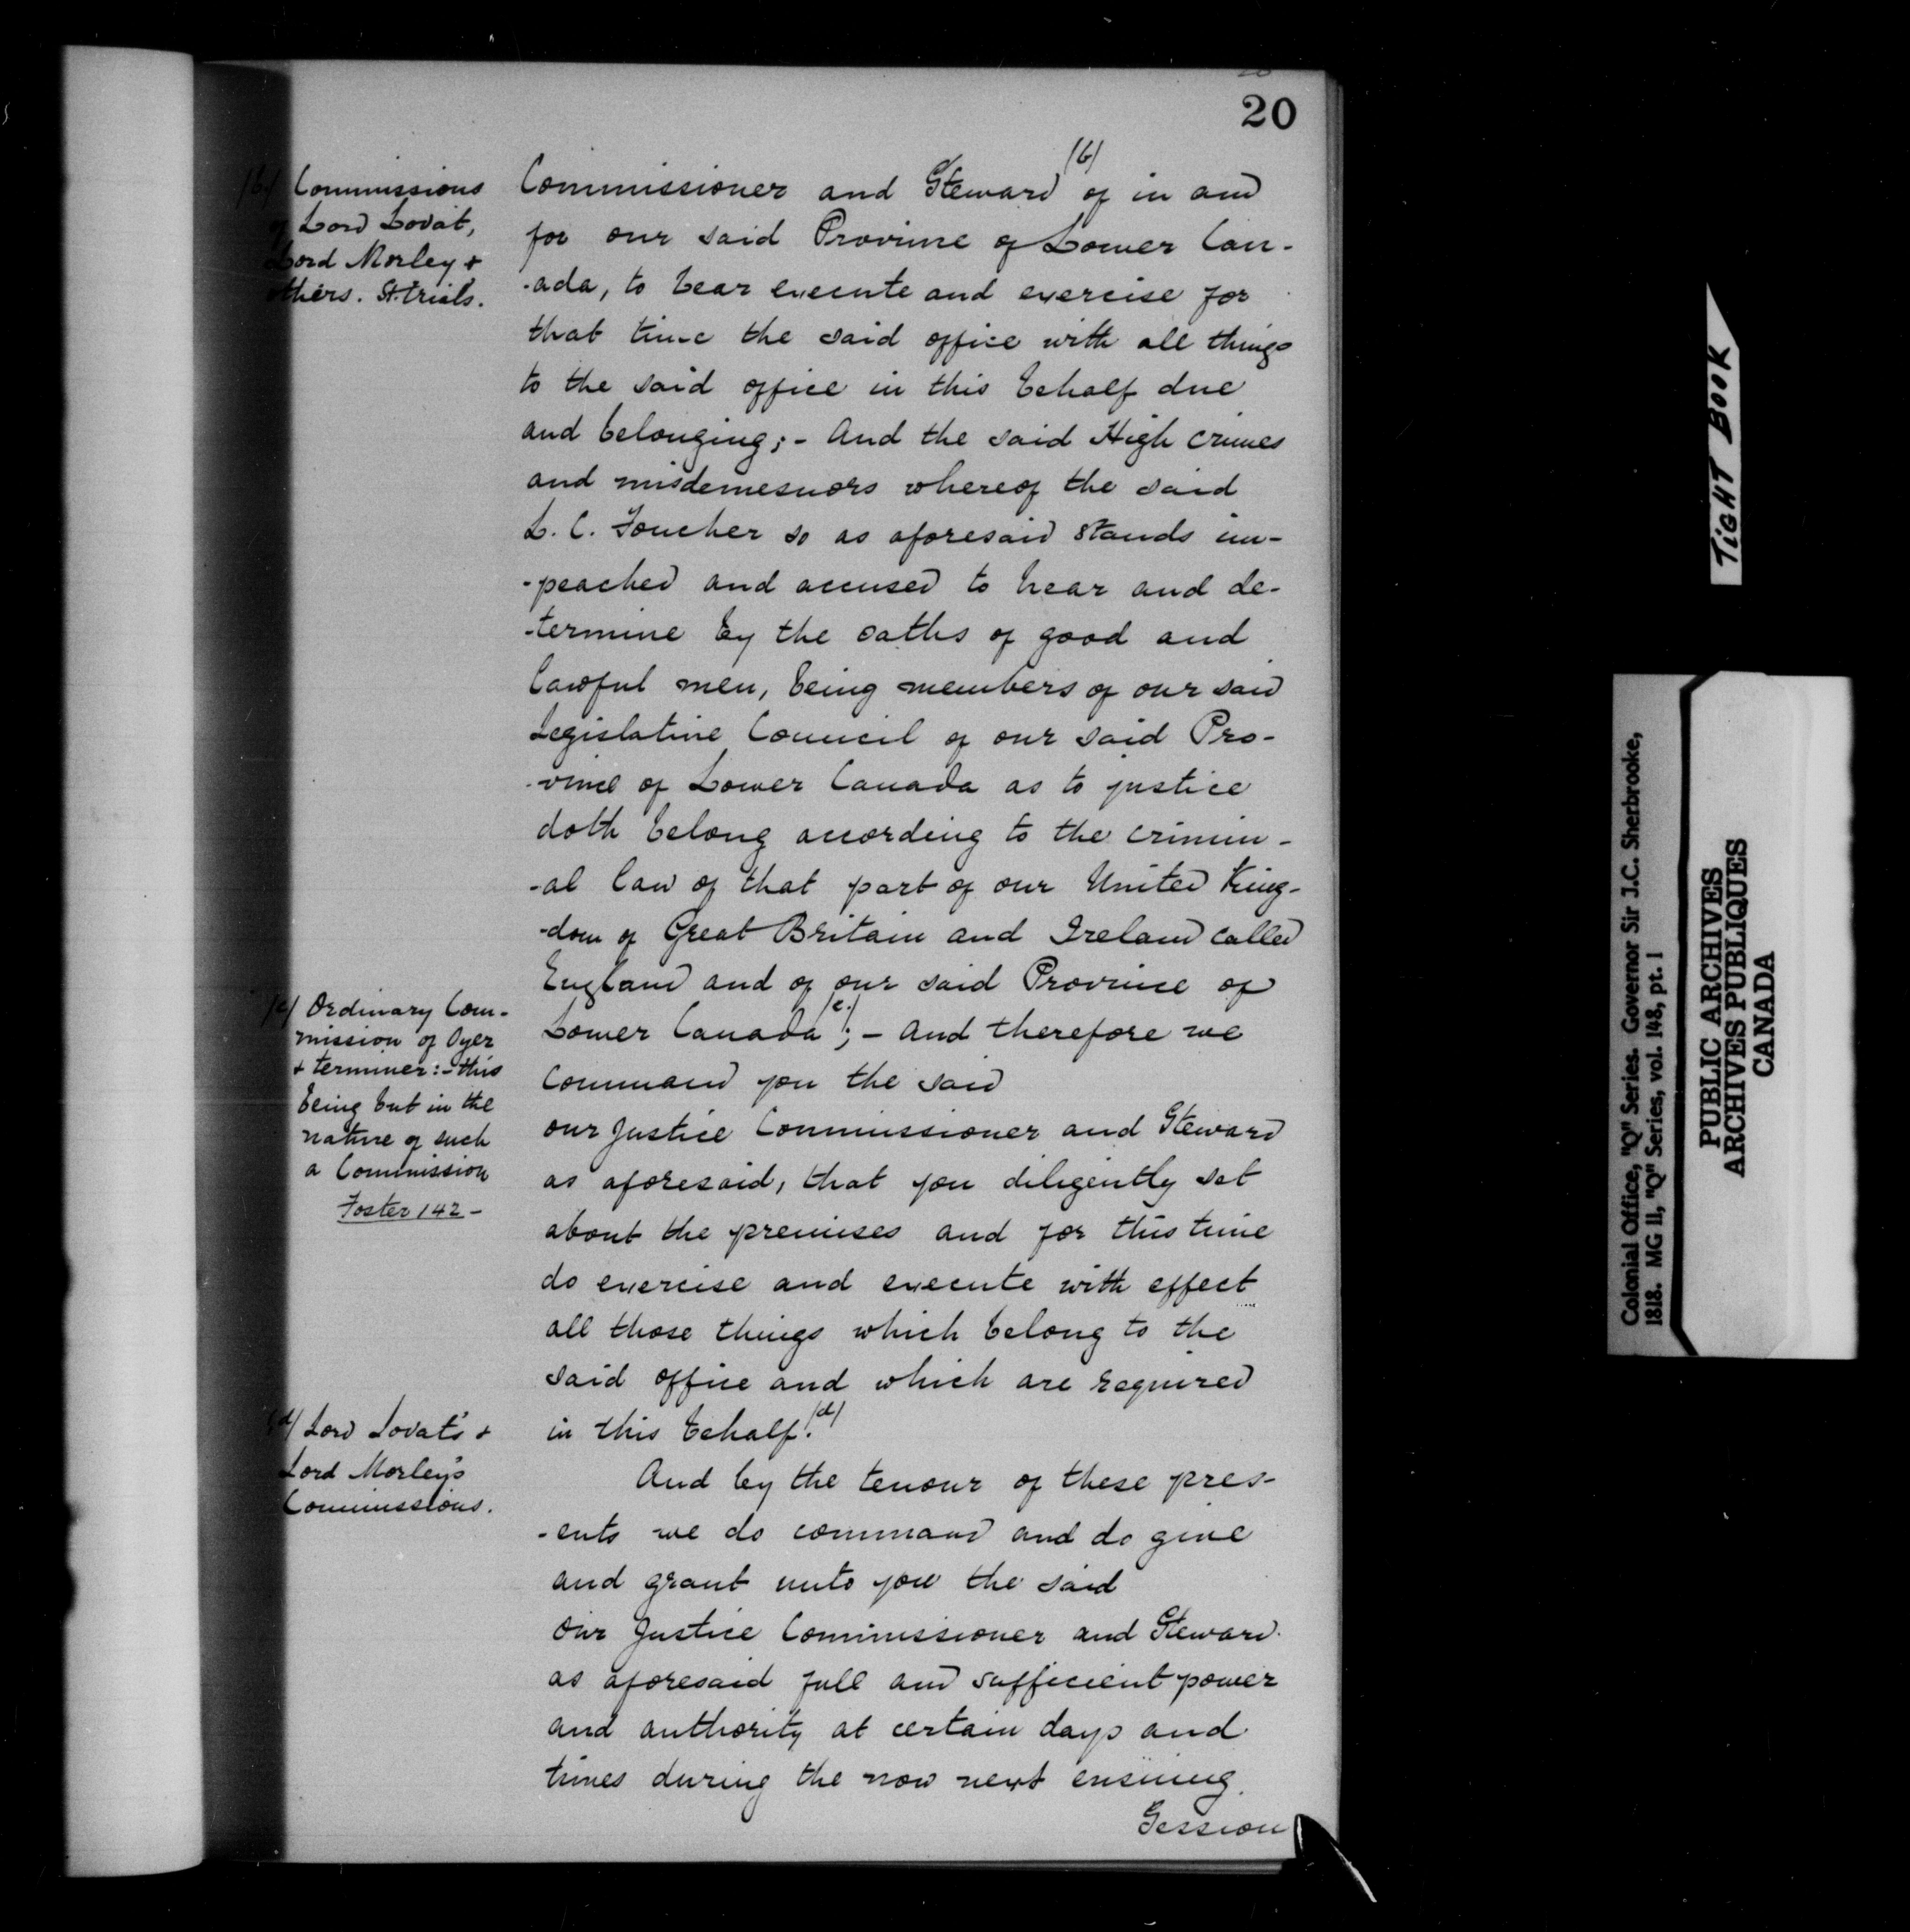 20
(b)
Commissioner and Steward of in and
for our said Province of Lower Can-
-ada, to bear execute and exercise for
that time the said office with all things
to the said office in this behalf due
and belonging; - And the said High crimes
and misdemesnors whereof the said
L. C. Foucher so as aforesaid stands im-
-peached and accused to hear and de-
-termine by the oaths of good and
lawful men, being members of our said
Legislative Council of our said Pro-
-vince of Lower Canada as to justice
doth belong according to the crimin-
-al law of that part of our United King-
-dom of Great Britain and Ireland called
England and of our said Province of
Lower Canada (c.); - And therefore we
command you the said
our Justice Commissioner and Steward
as aforesaid, that you diligently set
about the premises and for this time
do exercise and execute with effect
all those things which belong to the
said office and which are required
in this behalf. (d)
And by the tenour of these pres-
-ents we do command and do give
and grant unto you the said
our Justice Commissioner and Steward
as aforesaid full and sufficient power
and authority at certain days and
times during the now next ensuing
Session
(b) Commissions
of Lord Lovat,
Lord Morley &
others. St. trials.
(c) Ordinary Com-
mission of Oyer
& terminer: - this
being but in the
nature of such
a Commission
Foster 142 -
(d) Lord Lovat's &
Lord Morley's
Commissions.
TIGHT BOOK
Colonial Office, "Q" Series. Governor Sir J.C. Sherbrooke,
1818. MG 11, "Q" Series, vol. 148, pt. 1
PUBLIC ARCHIVES
ARCHIVES PUBLIQUES
CANADA